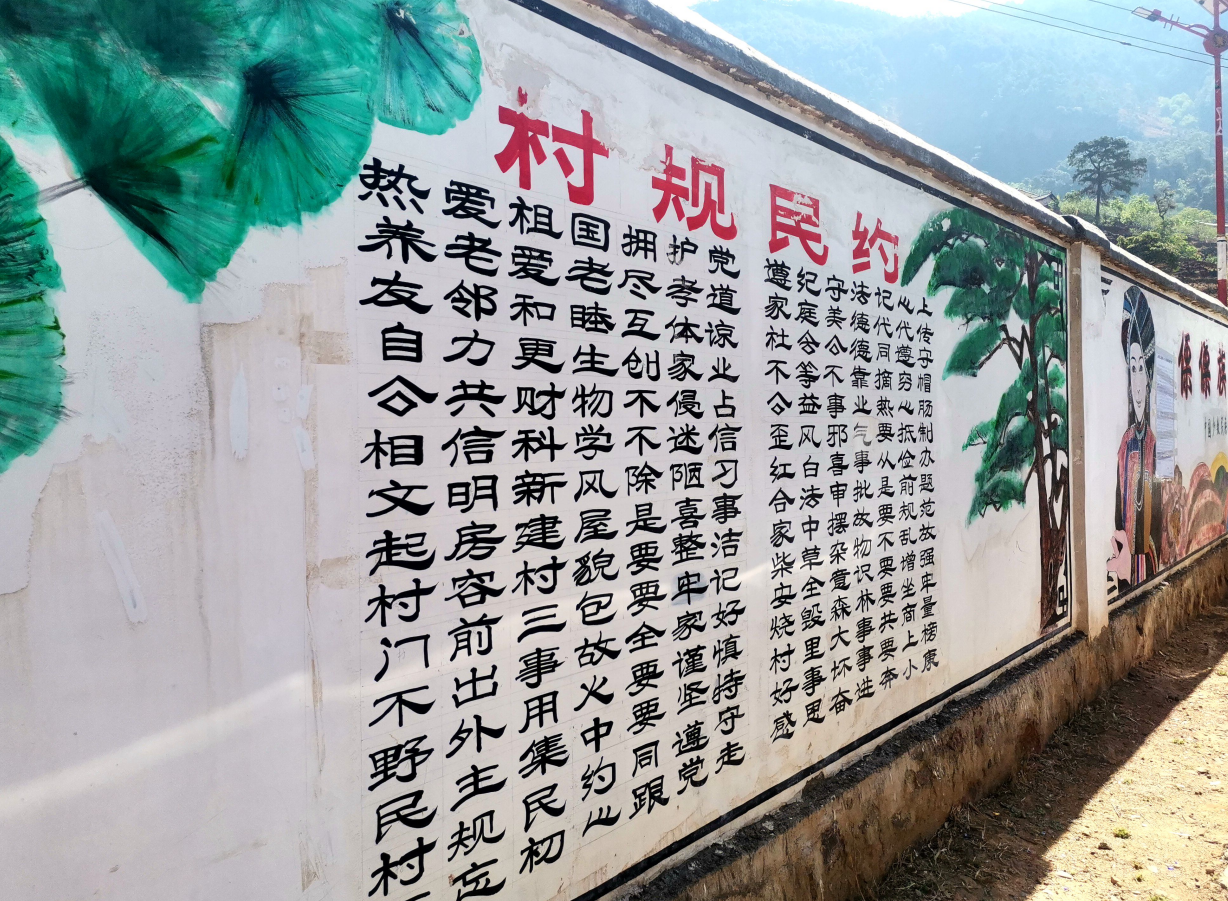 村规民约
热爱祖国拥护党 遵纪守法记心上
养老爱老尽孝道 家庭美德代代传
友邻和睦互体谅 社会公德同遵守
自力更生创家业 不等不靠摘穷帽
公共财物不侵占 公益事业热心肠
相信科学不迷信 歪风邪气要抵制
文明新风除陋习 红白喜事从俭办
起房建屋是喜事 合法审批是前题
村容村貌要整洁 家中摆故要规范
门前三包要牢记 柴草杂物不乱放
不出事故全家好 安全意识要增强
野外用火要谨慎 烧毁森林要坐牢
民主集中要坚持 村里大事共商量
村规民约同遵守 好事坏事要上榜
忘初心跟党走 感恩奋进奔小康
傈僳